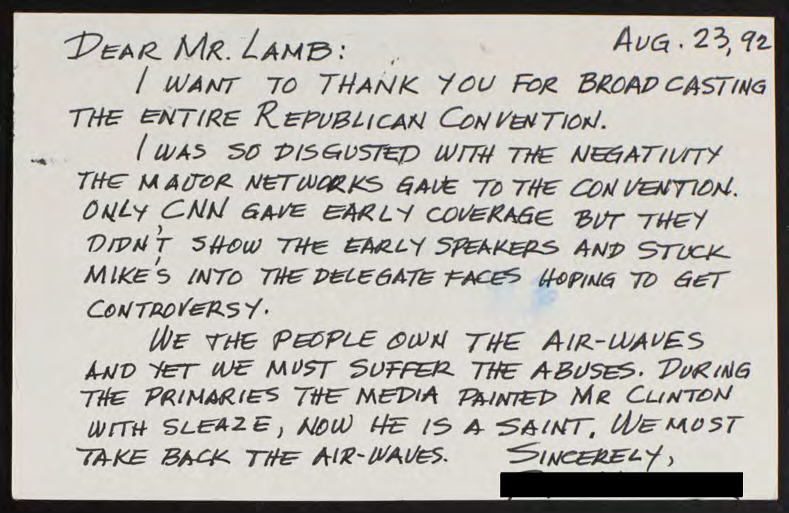 AUG. 23, 92
DEAR MR. LAMB:
I WANT TO THANK YOU FOR BROADCASTING
THE ENTIRE REPUBLICAN CONVENTION.
I WAS SO DISGUSTED WITH THE NEGATIVITY
THE MAJOR NETWORKS GAVE TO THE CONVENTION.
ONLY CNN GAVE EARLY COVERAGE BUT THEY
DIDN'T SHOW THE EARLY SPEAKERS AND STUCK
MIKE'S INTO THE DELEGATE FACES HOPING TO GET
CONTROVERSY.
WE THE PEOPLE OWN THE AIR-WAVES
AND YET WE MUST SUFFER THE ABUSES. DURING
THE PRIMARIES THE MEDIA PAINTED MR CLINTON
WITH SLEAZE, NOW HE IS A SAINT. WE MUST
TAKE BACK THE AIR-WAVES. SINCERELY,